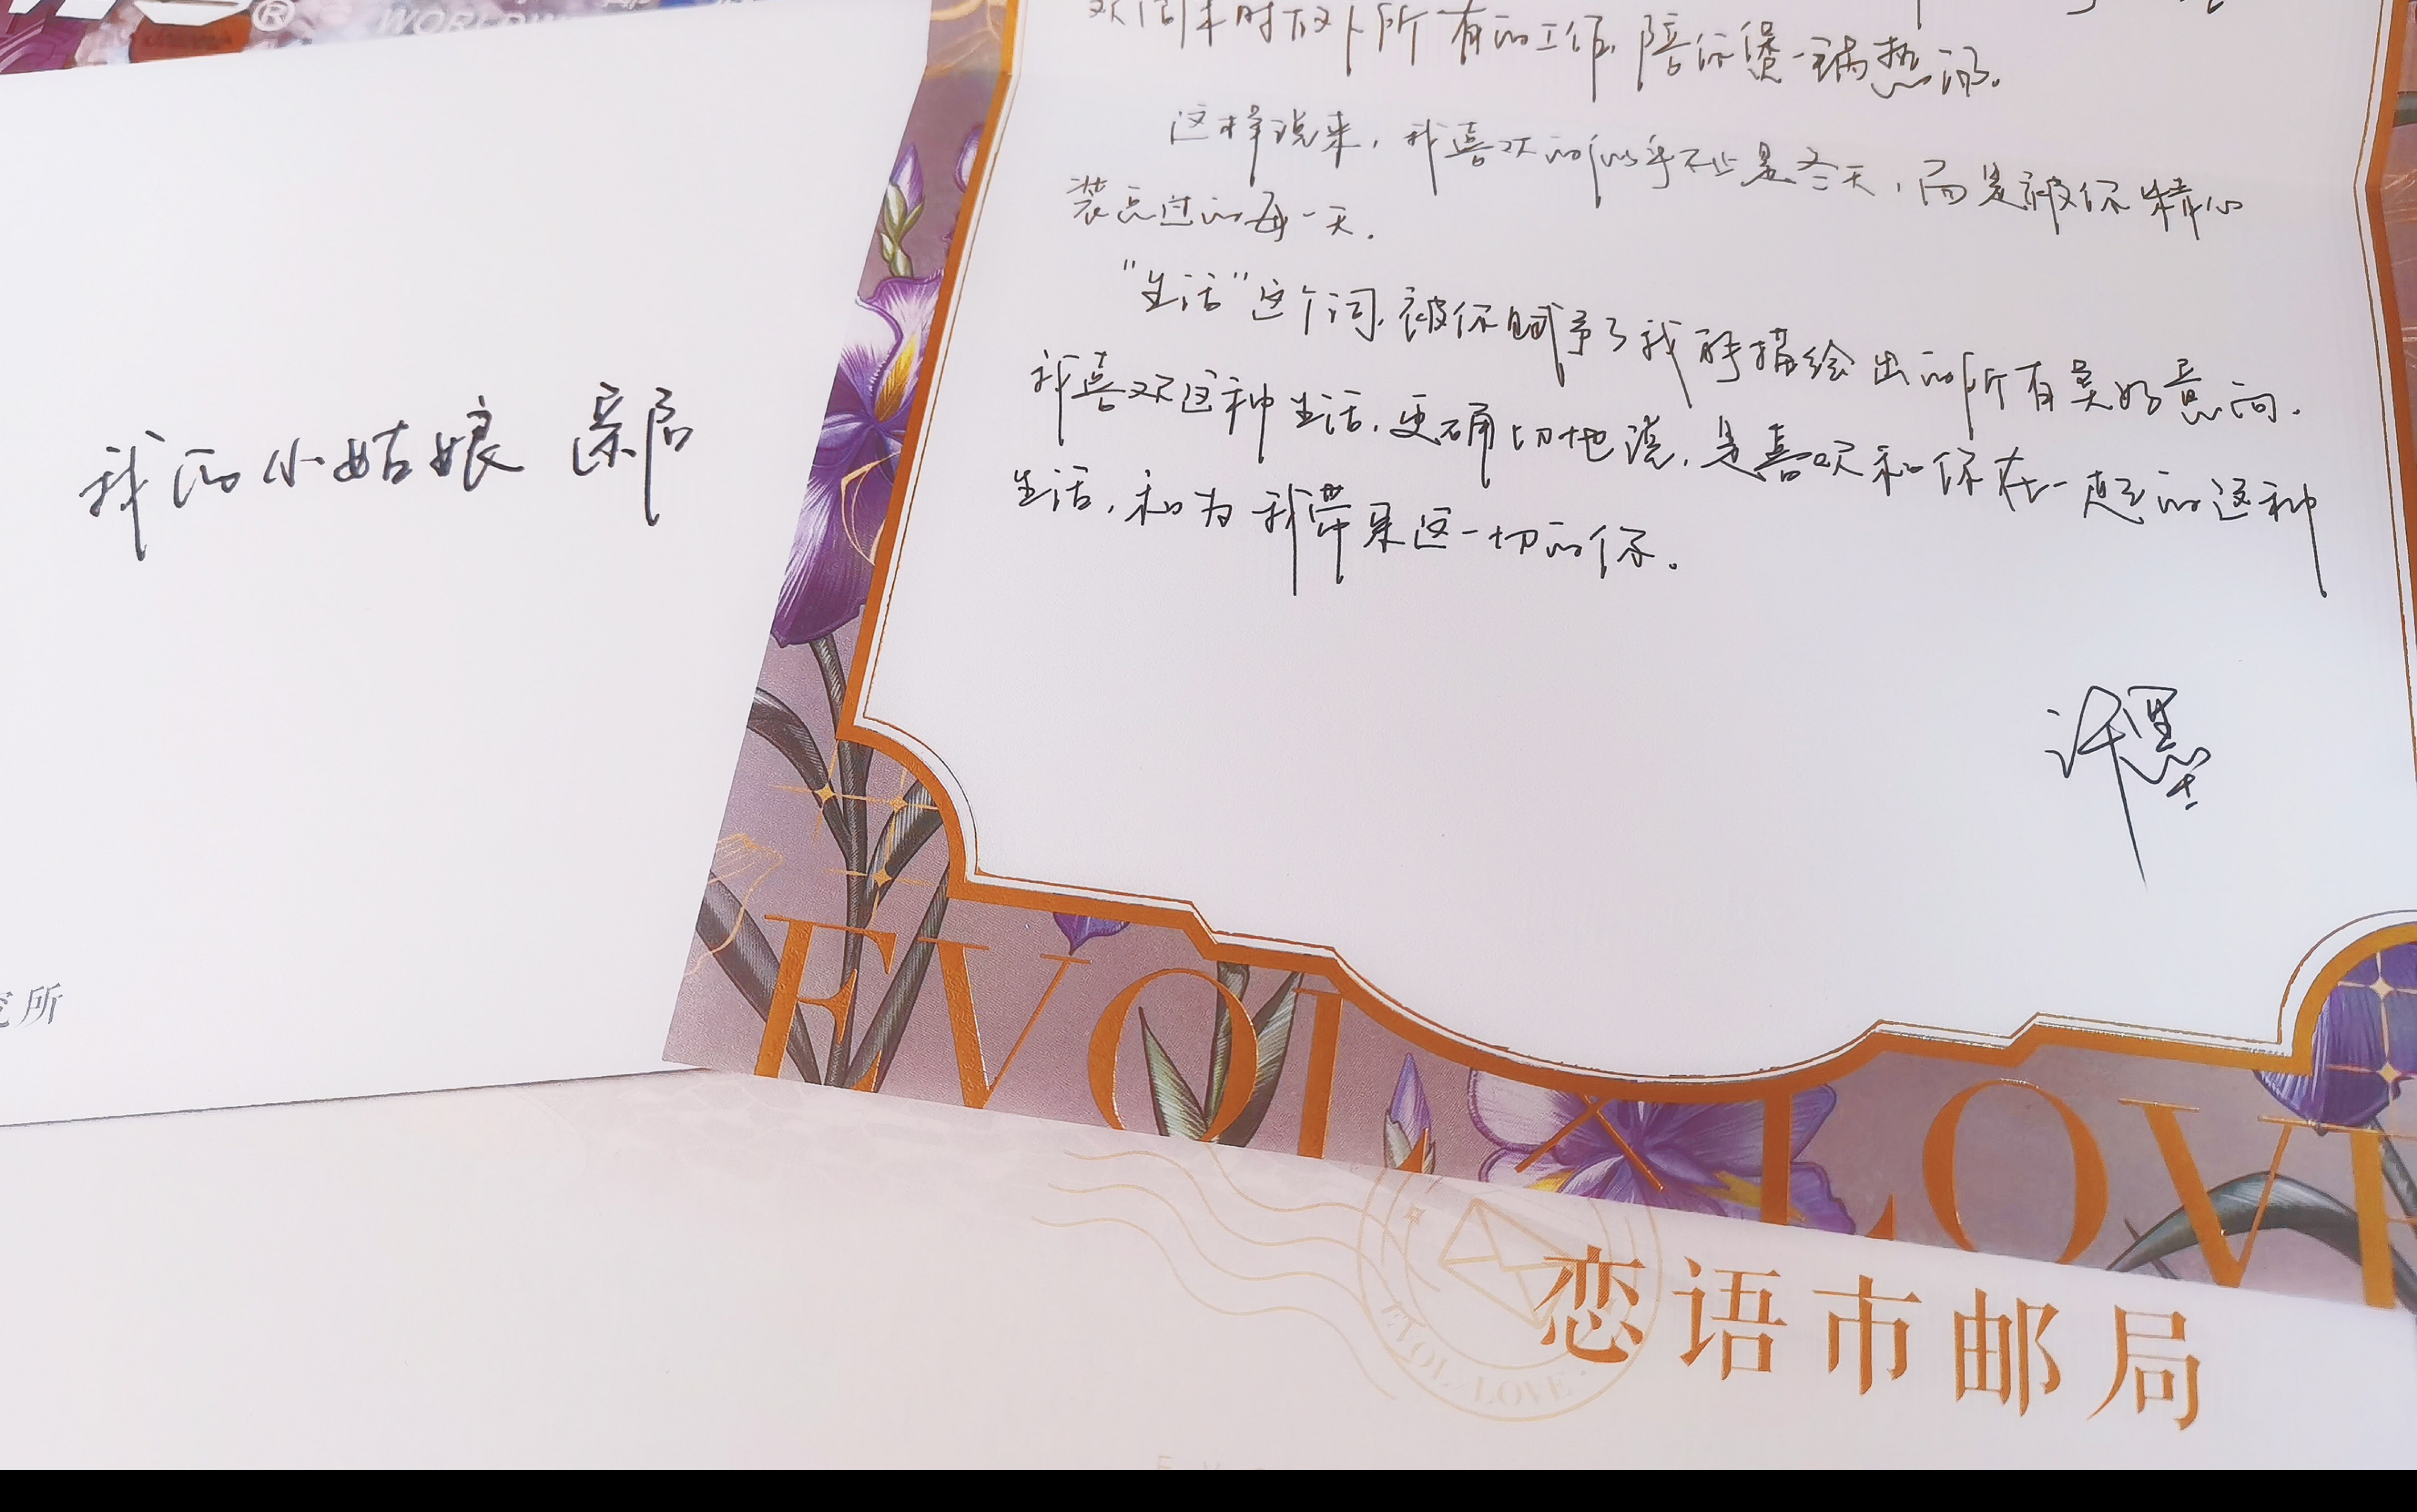 ®
WORLDW
我的小姑娘 亲启
究所
欢周末时放下所有的工作,陪你煲一锅热汤。
这样说来,我喜欢的似乎不止是冬天,而是被你精心
装点过的每一天.
"生活"这个词,被你赋予了我能描绘出的所有美好意向.
我喜欢这种生活,更确切地说,是喜欢和你在一起的这种
生活,和为我带来这一切的你.
许墨
EVOL×LOVE
EVOL×LOVE
恋语市邮局